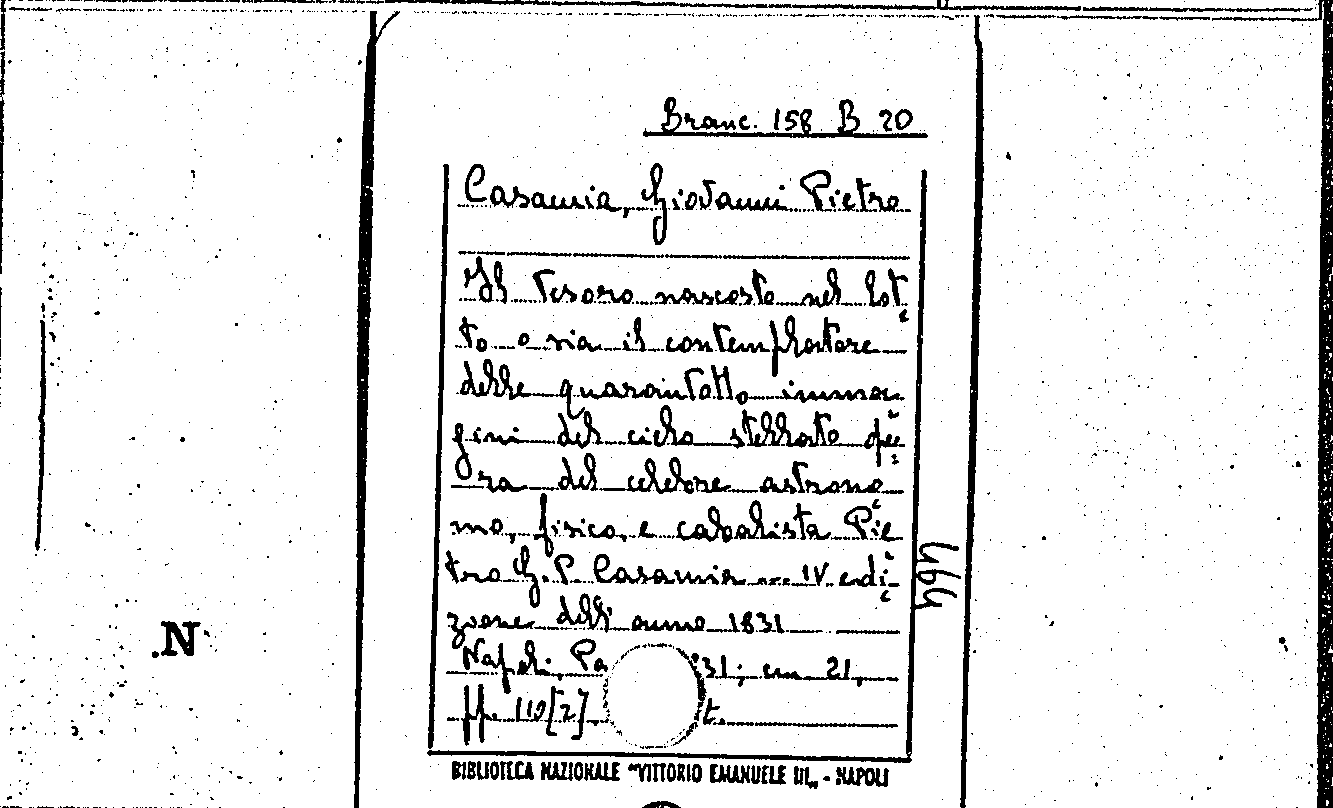 Branc. 158 B 20
Casamia, Giovanni Pietro
Il tesoro nascosto nel lot-
to o sia il contemplatore
delle quarantotto imma-
gini del cielo stellato ope-
ra del celebre astrono-
mo, fisico, e cabalista Pie-
tro G. P. Casamia ... IV edi-
zione dell' anno 1831
Napoli, Pa 831; cm 21,
pp. 119[2]. t.
464
.N
BIBLIOTECA NAZIONALE "VITTORIO EMANUELE III„ - NAPOLI